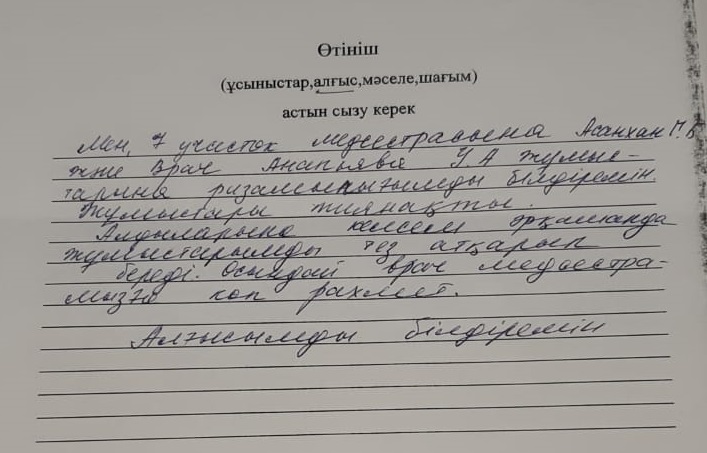 Өтініш
(ұсыныстар,алғыс,мәселе,шағым)
астын сызу керек
Мен, 7 участок медсестрасына Асанхан Г.Б
және врач Анапьяева У А жұмыс-
тарына ризашылығымды білдіремін.
Жұмыстары тиянақты.
Алдыларына келсем әрқашанда
жұмыстарымды тез атқарып
береді. Осындай врач медсестра-
мызға көп рахмет.
Алғысымды білдіремін